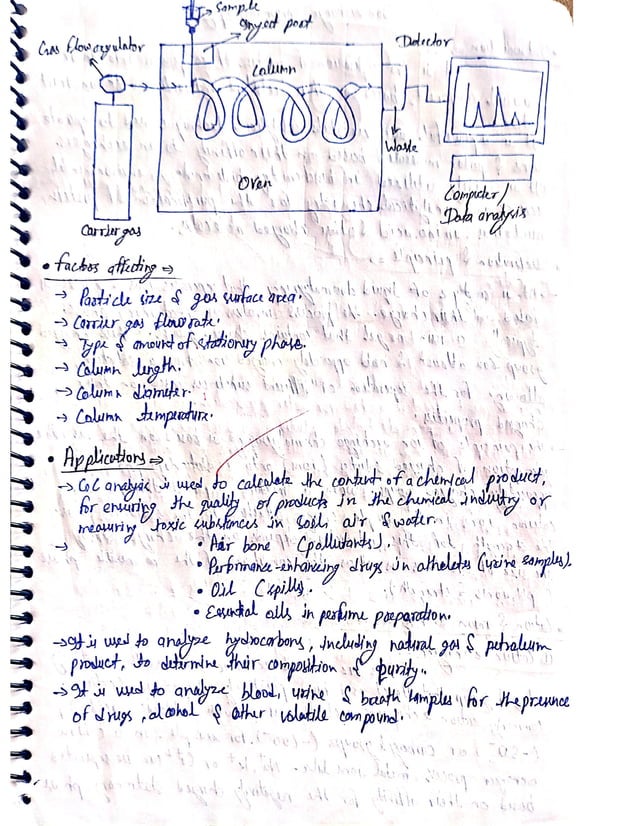 Sample
Inject port
Gas flow regulator
Column
Detector
Waste
Oven
Computer/
Data analysis
Carrier gas
• Factors affecting ⇒
→ Particle size & gas surface area.
→ Carrier gas flow rate.
→ Type & amount of stationary phase.
→ Column length.
→ Column diameter.
→ Column temperature.
• Applications ⇒
→ GC analysis is used to calculate the content of a chemical product,
for ensuring the quality of products in the chemical industry or
measuring toxic substances in soils air & water.
→ • Air bone (pollutants).
• Performance-enhancing drugs in atheletes (urine samples).
• Oil (spills).
• Essential oils in perfume preparation.
→ It is used to analyze hydrocarbons, including natural gas & petraleum
product, to determine their composition & purity.
→ It is used to analyze blood, urine & breath samples for the presence
of drugs, alcohol & other volatile compound.